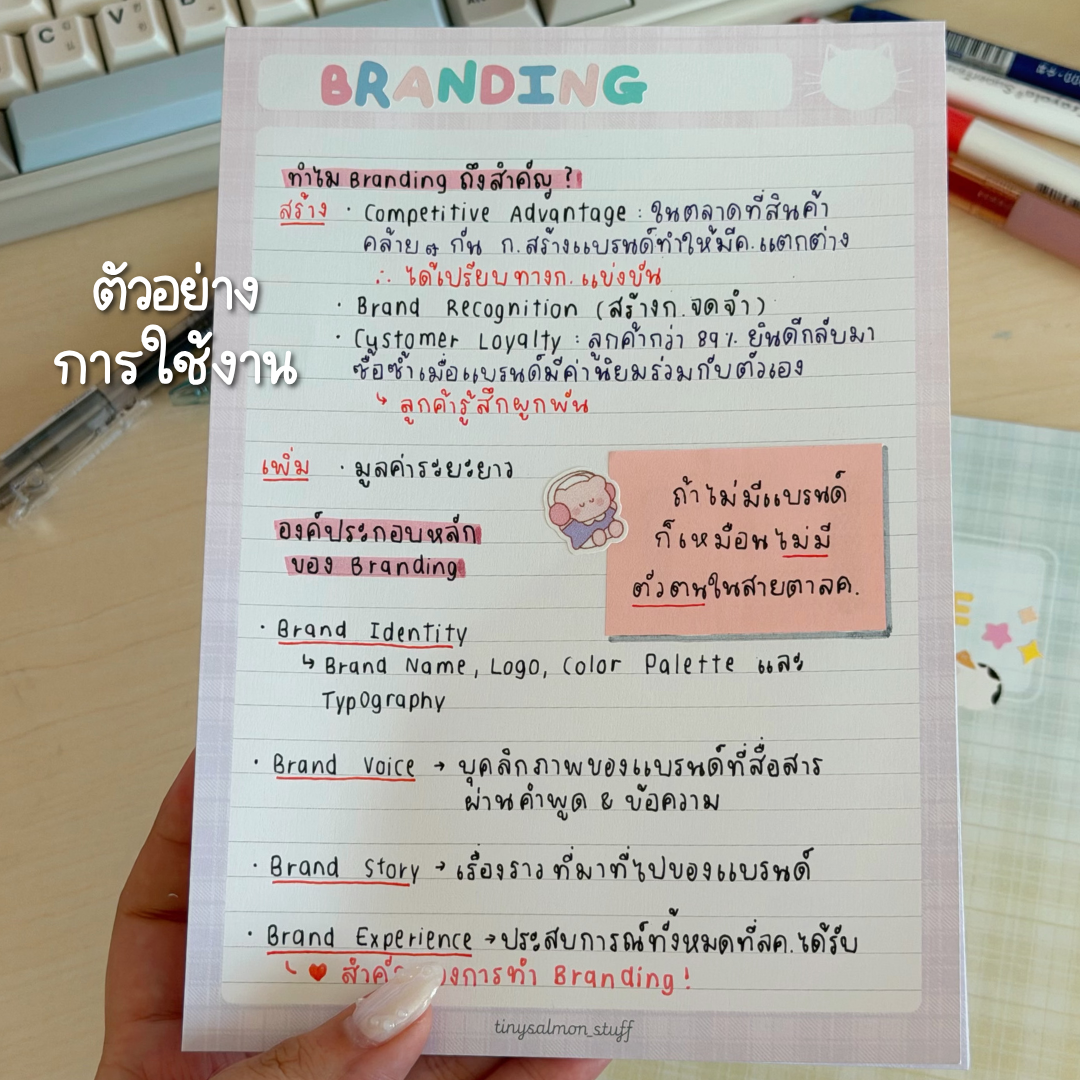 BRANDING
ทำไม Branding ถึงสำคัญ ?
สร้าง · Competitive Advantage : ในตลาดที่สินค้า
คล้าย ๆ กัน ก.สร้างแบรนด์ทำให้มีค.แตกต่าง
∴ ได้เปรียบทางก.แข่งขัน
· Brand Recognition (สร้างก.จดจำ)
· Customer Loyalty : ลูกค้ากว่า 89% ยินดีกลับมา
ซื้อซ้ำเมื่อแบรนด์มีค่านิยมร่วมกับตัวเอง
↳ ลูกค้ารู้สึกผูกพัน
ตัวอย่าง
การใช้งาน
เพิ่ม · มูลค่าระยะยาว
ถ้าไม่มีแบรนด์
ก็เหมือนไม่มี
ตัวตนในสายตาลค.
องค์ประกอบหลัก
ของ Branding
· Brand Identity
↳ Brand Name, Logo, Color Palette และ
Typography
· Brand Voice → บุคลิกภาพของแบรนด์ที่สื่อสาร
ผ่านคำพูด & ข้อความ
· Brand Story → เรื่องราว ที่มาที่ไปของแบรนด์
· Brand Experience → ประสบการณ์ทั้งหมดที่ลค.ได้รับ
↳ ♥ การทำ Branding!
tinysalmon_stuff
C
V
B